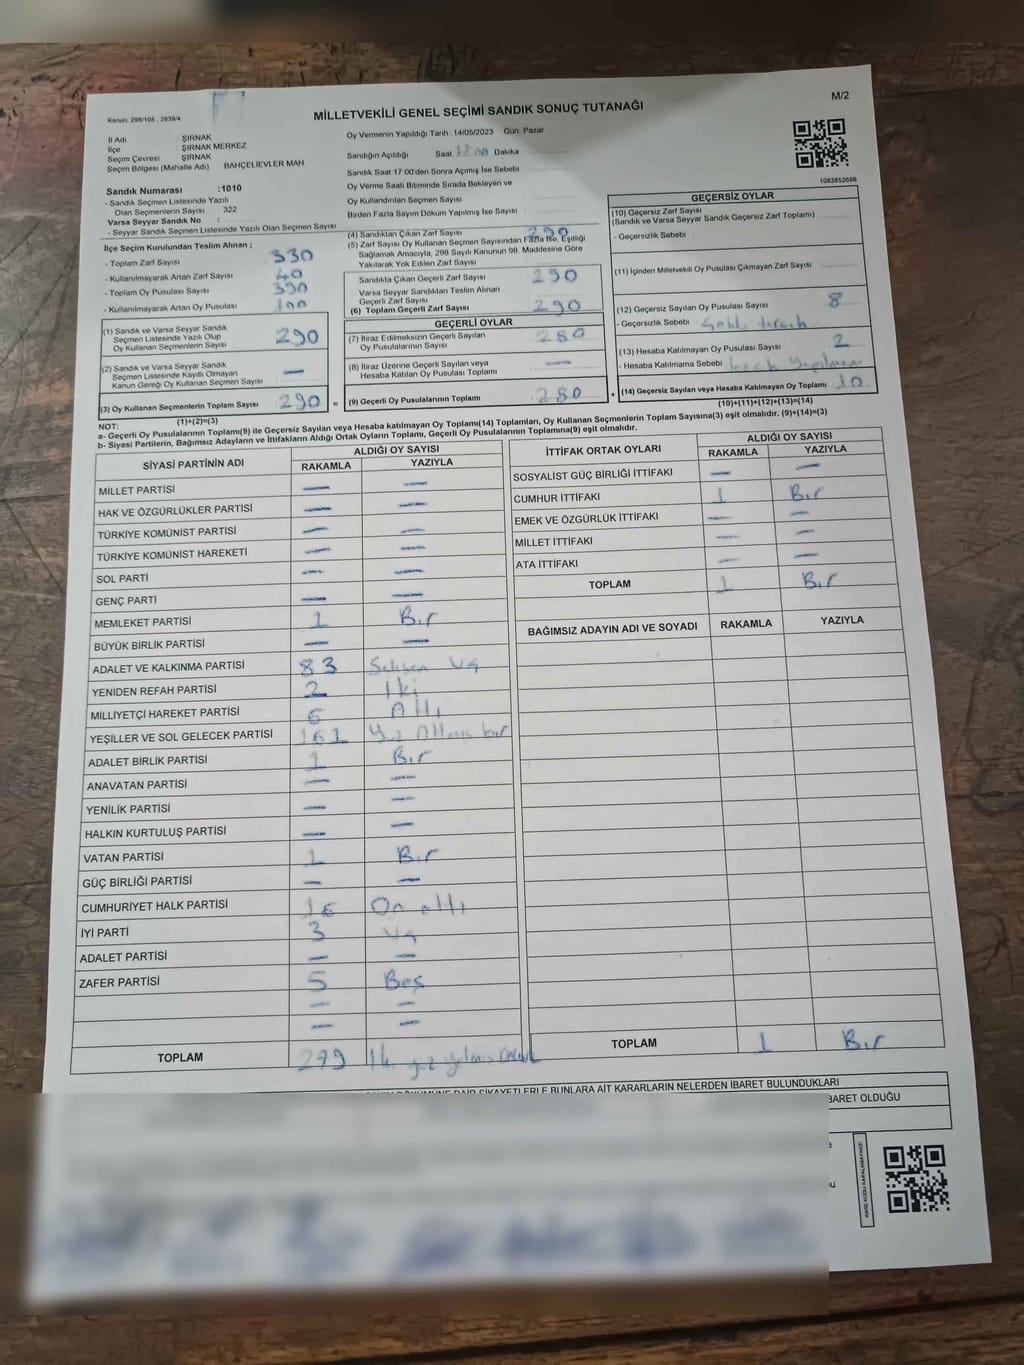 M/2
Kanun: 298/105 , 2839/4
MİLLETVEKİLİ GENEL SEÇİMİ SANDIK SONUÇ TUTANAĞI
İl Adı ŞIRNAK
İlçe ŞIRNAK MERKEZ
Seçim Çevresi ŞIRNAK
Seçim Bölgesi (Mahalle Adı) BAHÇELİEVLER MAH
Sandık Numarası :1010
- Sandık Seçmen Listesinde Yazılı
Olan Seçmenlerin Sayısı 322
Varsa Seyyar Sandık No :
- Seyyar Sandık Seçmen Listesinde Yazılı Olan Seçmen Sayısı
Oy Vermenin Yapıldığı Tarih :14/05/2023 Gün: Pazar
Sandığın Açıldığı Saat Dakika
Sandık Saat 17:00'den Sonra Açılmış İse Sebebi
Oy Verme Saati Bitiminde Sırada Bekleyen ve
Oy Kullandırılan Seçmen Sayısı
Birden Fazla Sayım Döküm Yapılmış İse Sayısı
1083852666
İlçe Seçim Kurulundan Teslim Alınan ;
- Toplam Zarf Sayısı 330
- Kullanılmayarak Artan Zarf Sayısı 40
- Toplam Oy Pusulası Sayısı 390
- Kullanılmayarak Artan Oy Pusulası 100
(1) Sandık ve Varsa Seyyar Sandık
Seçmen Listesinde Yazılı Olup
Oy Kullanan Seçmenlerin Sayısı 290
(2) Sandık ve Varsa Seyyar Sandık
Seçmen Listesinde Kayıtlı Olmayan
Kanun Gereği Oy Kullanan Seçmen Sayısı —
(3) Oy Kullanan Seçmenlerin Toplam Sayısı 290 =
(1)+(2)=(3)
(4) Sandıktan Çıkan Zarf Sayısı 290
(5) Zarf Sayısı Oy Kullanan Seçmen Sayısından Fazla İse, Eşitliği
Sağlamak Amacıyla, 298 Sayılı Kanunun 98. Maddesine Göre
Yakılarak Yok Edilen Zarf Sayısı
Sandıkta Çıkan Geçerli Zarf Sayısı 290
Varsa Seyyar Sandıktan Teslim Alınan
Geçerli Zarf Sayısı
(6) Toplam Geçerli Zarf Sayısı 290
GEÇERLİ OYLAR
(7) İtiraz Edilmeksizin Geçerli Sayılan
Oy Pusulalarının Sayısı 280
(8) İtiraz Üzerine Geçerli Sayılan veya
Hesaba Katılan Oy Pusulası Toplamı —
(9) Geçerli Oy Pusulalarının Toplamı 280 +
GEÇERSİZ OYLAR
(10) Geçersiz Zarf Sayısı
(Sandık ve Varsa Seyyar Sandık Geçersiz Zarf Toplamı)
- Geçersizlik Sebebi
(11) İçinden Milletvekili Oy Pusulası Çıkmayan Zarf Sayısı
(12) Geçersiz Sayılan Oy Pusulası Sayısı 8
- Geçersizlik Sebebi
(13) Hesaba Katılmayan Oy Pusulası Sayısı 2
- Hesaba Katılmama Sebebi
(14) Geçersiz Sayılan veya Hesaba Katılmayan Oy Toplamı 10
(10)+(11)+(12)+(13)=(14)
NOT:
a- Geçerli Oy Pusulalarının Toplamı(9) ile Geçersiz Sayılan veya Hesaba katılmayan Oy Toplamı(14) Toplamları, Oy Kullanan Seçmenlerin Toplam Sayısına(3) eşit olmalıdır. (9)+(14)=(3)
b- Siyasi Partilerin, Bağımsız Adayların ve İttifakların Aldığı Ortak Oyların Toplamı, Geçerli Oy Pusulalarının Toplamına(9) eşit olmalıdır.
SİYASİ PARTİNİN ADI ALDIĞI OY SAYISI
RAKAMLA YAZIYLA
MİLLET PARTİSİ — —
HAK VE ÖZGÜRLÜKLER PARTİSİ — —
TÜRKİYE KOMÜNİST PARTİSİ — —
TÜRKİYE KOMÜNİST HAREKETİ — —
SOL PARTİ — —
GENÇ PARTİ — —
MEMLEKET PARTİSİ 1 Bir
BÜYÜK BİRLİK PARTİSİ — —
ADALET VE KALKINMA PARTİSİ 83 Seksen üç
YENİDEN REFAH PARTİSİ 2 İki
MİLLİYETÇİ HAREKET PARTİSİ 6 Altı
YEŞİLLER VE SOL GELECEK PARTİSİ 161 Yüz Altmış bir
ADALET BİRLİK PARTİSİ 1 Bir
ANAVATAN PARTİSİ — —
YENİLİK PARTİSİ — —
HALKIN KURTULUŞ PARTİSİ — —
VATAN PARTİSİ 1 Bir
GÜÇ BİRLİĞİ PARTİSİ — —
CUMHURİYET HALK PARTİSİ 16 On altı
İYİ PARTİ 3 Üç
ADALET PARTİSİ — —
ZAFER PARTİSİ 5 Beş
— —
— —
TOPLAM 279
İTTİFAK ORTAK OYLARI ALDIĞI OY SAYISI
RAKAMLA YAZIYLA
SOSYALİST GÜÇ BİRLİĞİ İTTİFAKI — —
CUMHUR İTTİFAKI 1 Bir
EMEK VE ÖZGÜRLÜK İTTİFAKI — —
MİLLET İTTİFAKI — —
ATA İTTİFAKI — —
TOPLAM 1 Bir
BAĞIMSIZ ADAYIN ADI VE SOYADI RAKAMLA YAZIYLA
TOPLAM 1 Bir
ŞİKAYETLERLE BUNLARA AİT KARARLARIN NELERDEN İBARET BULUNDUKLARI
BARET OLDUĞU